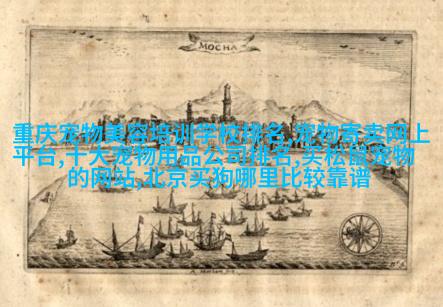 MOCHA
重庆宠物美容培训学校排名,宠物寄卖网上
平台,十大宠物用品公司排名,买松鼠宠物
的网站,北京买狗哪里比较靠谱